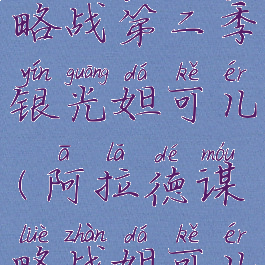 略战第二季
yín guāng dá kě ér
银光妲可儿
ā lā dé móu
(阿拉德谋
lüè zhàn dá kě ér
略战妲可儿